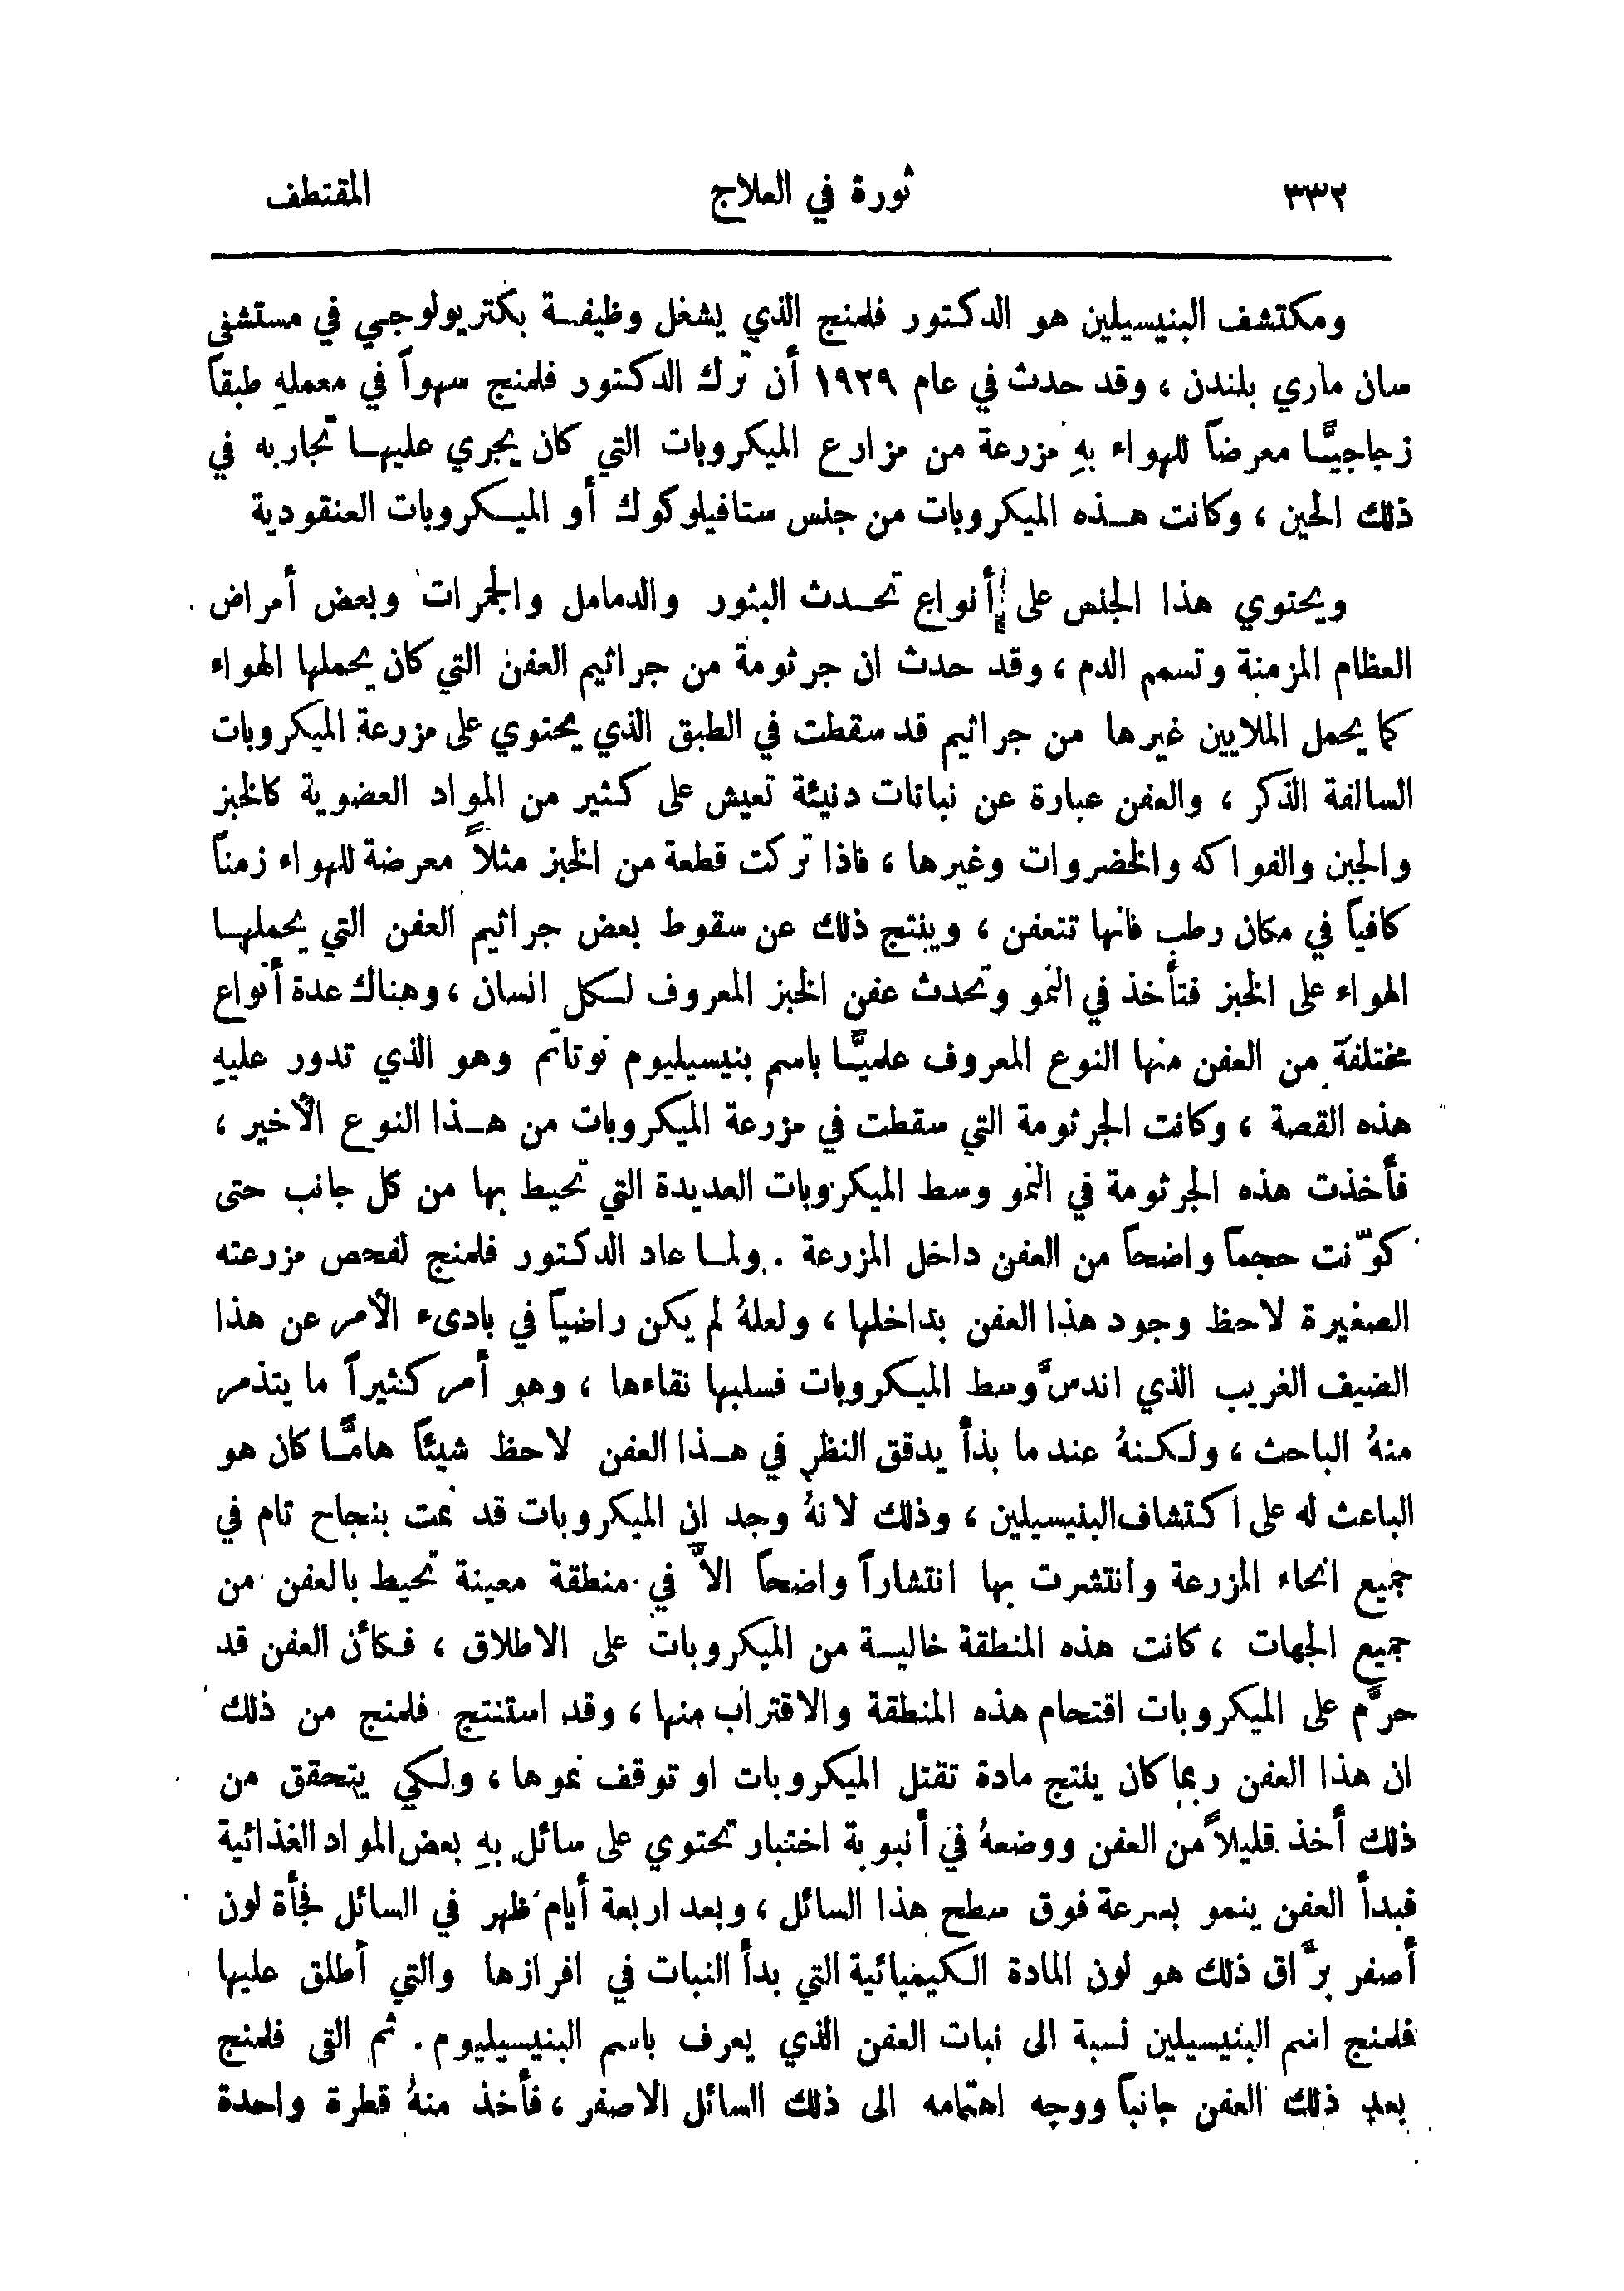 ٣٣٢ ثورة في العلاج المقتطف
ومكتشف البنيسيلين هو الدكتور فلمنج الذي يشغل وظيفة بكتريولوجي في مستشفى
سان ماري بلندن ، وقد حدث في عام ١٩٢٩ أن ترك الدكتور فلمنج سهواً في معملهِ طبقاً
زجاجيًّا معرضاً للهواء بهِ مزرعة من مزارع الميكروبات التي كان يجري عليها تجاربه في
ذلك الحين ، وكانت هذه الميكروبات من جنس ستافيلوكوك أو الميكروبات العنقودية
ويحتوي هذا الجنس على أنواع تحدث البثور والدمامل والجمرات وبعض أمراض
العظام المزمنة وتسمم الدم ، وقد حدث ان جرثومة من جراثيم العفن التي كان يحملها الهواء
كما يحمل الملايين غيرها من جراثيم قد سقطت في الطبق الذي يحتوي على مزرعة الميكروبات
السالفة الذكر ، والعفن عبارة عن نباتات دنيئة تعيش على كثير من المواد العضوية كالخبز
والجبن والفواكه والخضروات وغيرها ، فاذا تركت قطعة من الخبز مثلاً معرضة للهواء زمناً
كافياً في مكان رطب فانها تتعفن ، وينتج ذلك عن سقوط بعض جراثيم العفن التي يحملها
الهواء على الخبز فتأخذ في النمو وتحدث عفن الخبز المعروف لكل انسان ، وهناك عدة أنواع
مختلفة من العفن منها النوع المعروف علميًّا باسم بنيسيليوم نوتاتم وهو الذي تدور عليهِ
هذه القصة ، وكانت الجرثومة التي سقطت في مزرعة الميكروبات من هذا النوع الأخير ،
فأخذت هذه الجرثومة في النمو وسط الميكروبات العديدة التي تحيط بها من كل جانب حتى
كوّنت حجماً واضحاً من العفن داخل المزرعة . ولما عاد الدكتور فلمنج لفحص مزرعته
الصغيرة لاحظ وجود هذا العفن بداخلها ، ولعلهُ لم يكن راضياً في بادىء الأمر عن هذا
الضيف الغريب الذي اندسَّ وسط الميكروبات فسلبها نقاءها ، وهو أمر كثيراً ما يتذمر
منهُ الباحث ، ولكنهُ عند ما بدأ يدقق النظر في هذا العفن لاحظ شيئاً هامًّا كان هو
الباعث له على اكتشاف البنيسيلين ، وذلك لانهُ وجد ان الميكروبات قد نمت بنجاح تام في
جميع انحاء المزرعة وانتشرت بها انتشاراً واضحاً الاَّ في منطقة معينة تحيط بالعفن من
جميع الجهات ، كانت هذه المنطقة خالية من الميكروبات على الاطلاق ، فكأن العفن قد
حرَّم على الميكروبات اقتحام هذه المنطقة والاقتراب منها ، وقد استنتج فلمنج من ذلك
ان هذا العفن ربما كان ينتج مادة تقتل الميكروبات او توقف نموها ، ولكي يتحقق من
ذلك أخذ قليلاً من العفن ووضعهُ في أنبوبة اختبار تحتوي على سائل بهِ بعض المواد الغذائية
فبدأ العفن ينمو بسرعة فوق سطح هذا السائل ، وبعد اربعة أيام ظهر في السائل فجأة لون
أصفر برَّاق ذلك هو لون المادة الكيميائية التي بدأ النبات في افرازها والتي أطلق عليها
فلمنج اسم البنيسيلين نسبة الى نبات العفن الذي يعرف باسم البنيسيليوم . ثم القى فلمنج
بعد ذلك العفن جانباً ووجه اهتمامه الى ذلك السائل الاصفر ، فأخذ منهُ قطرة واحدة